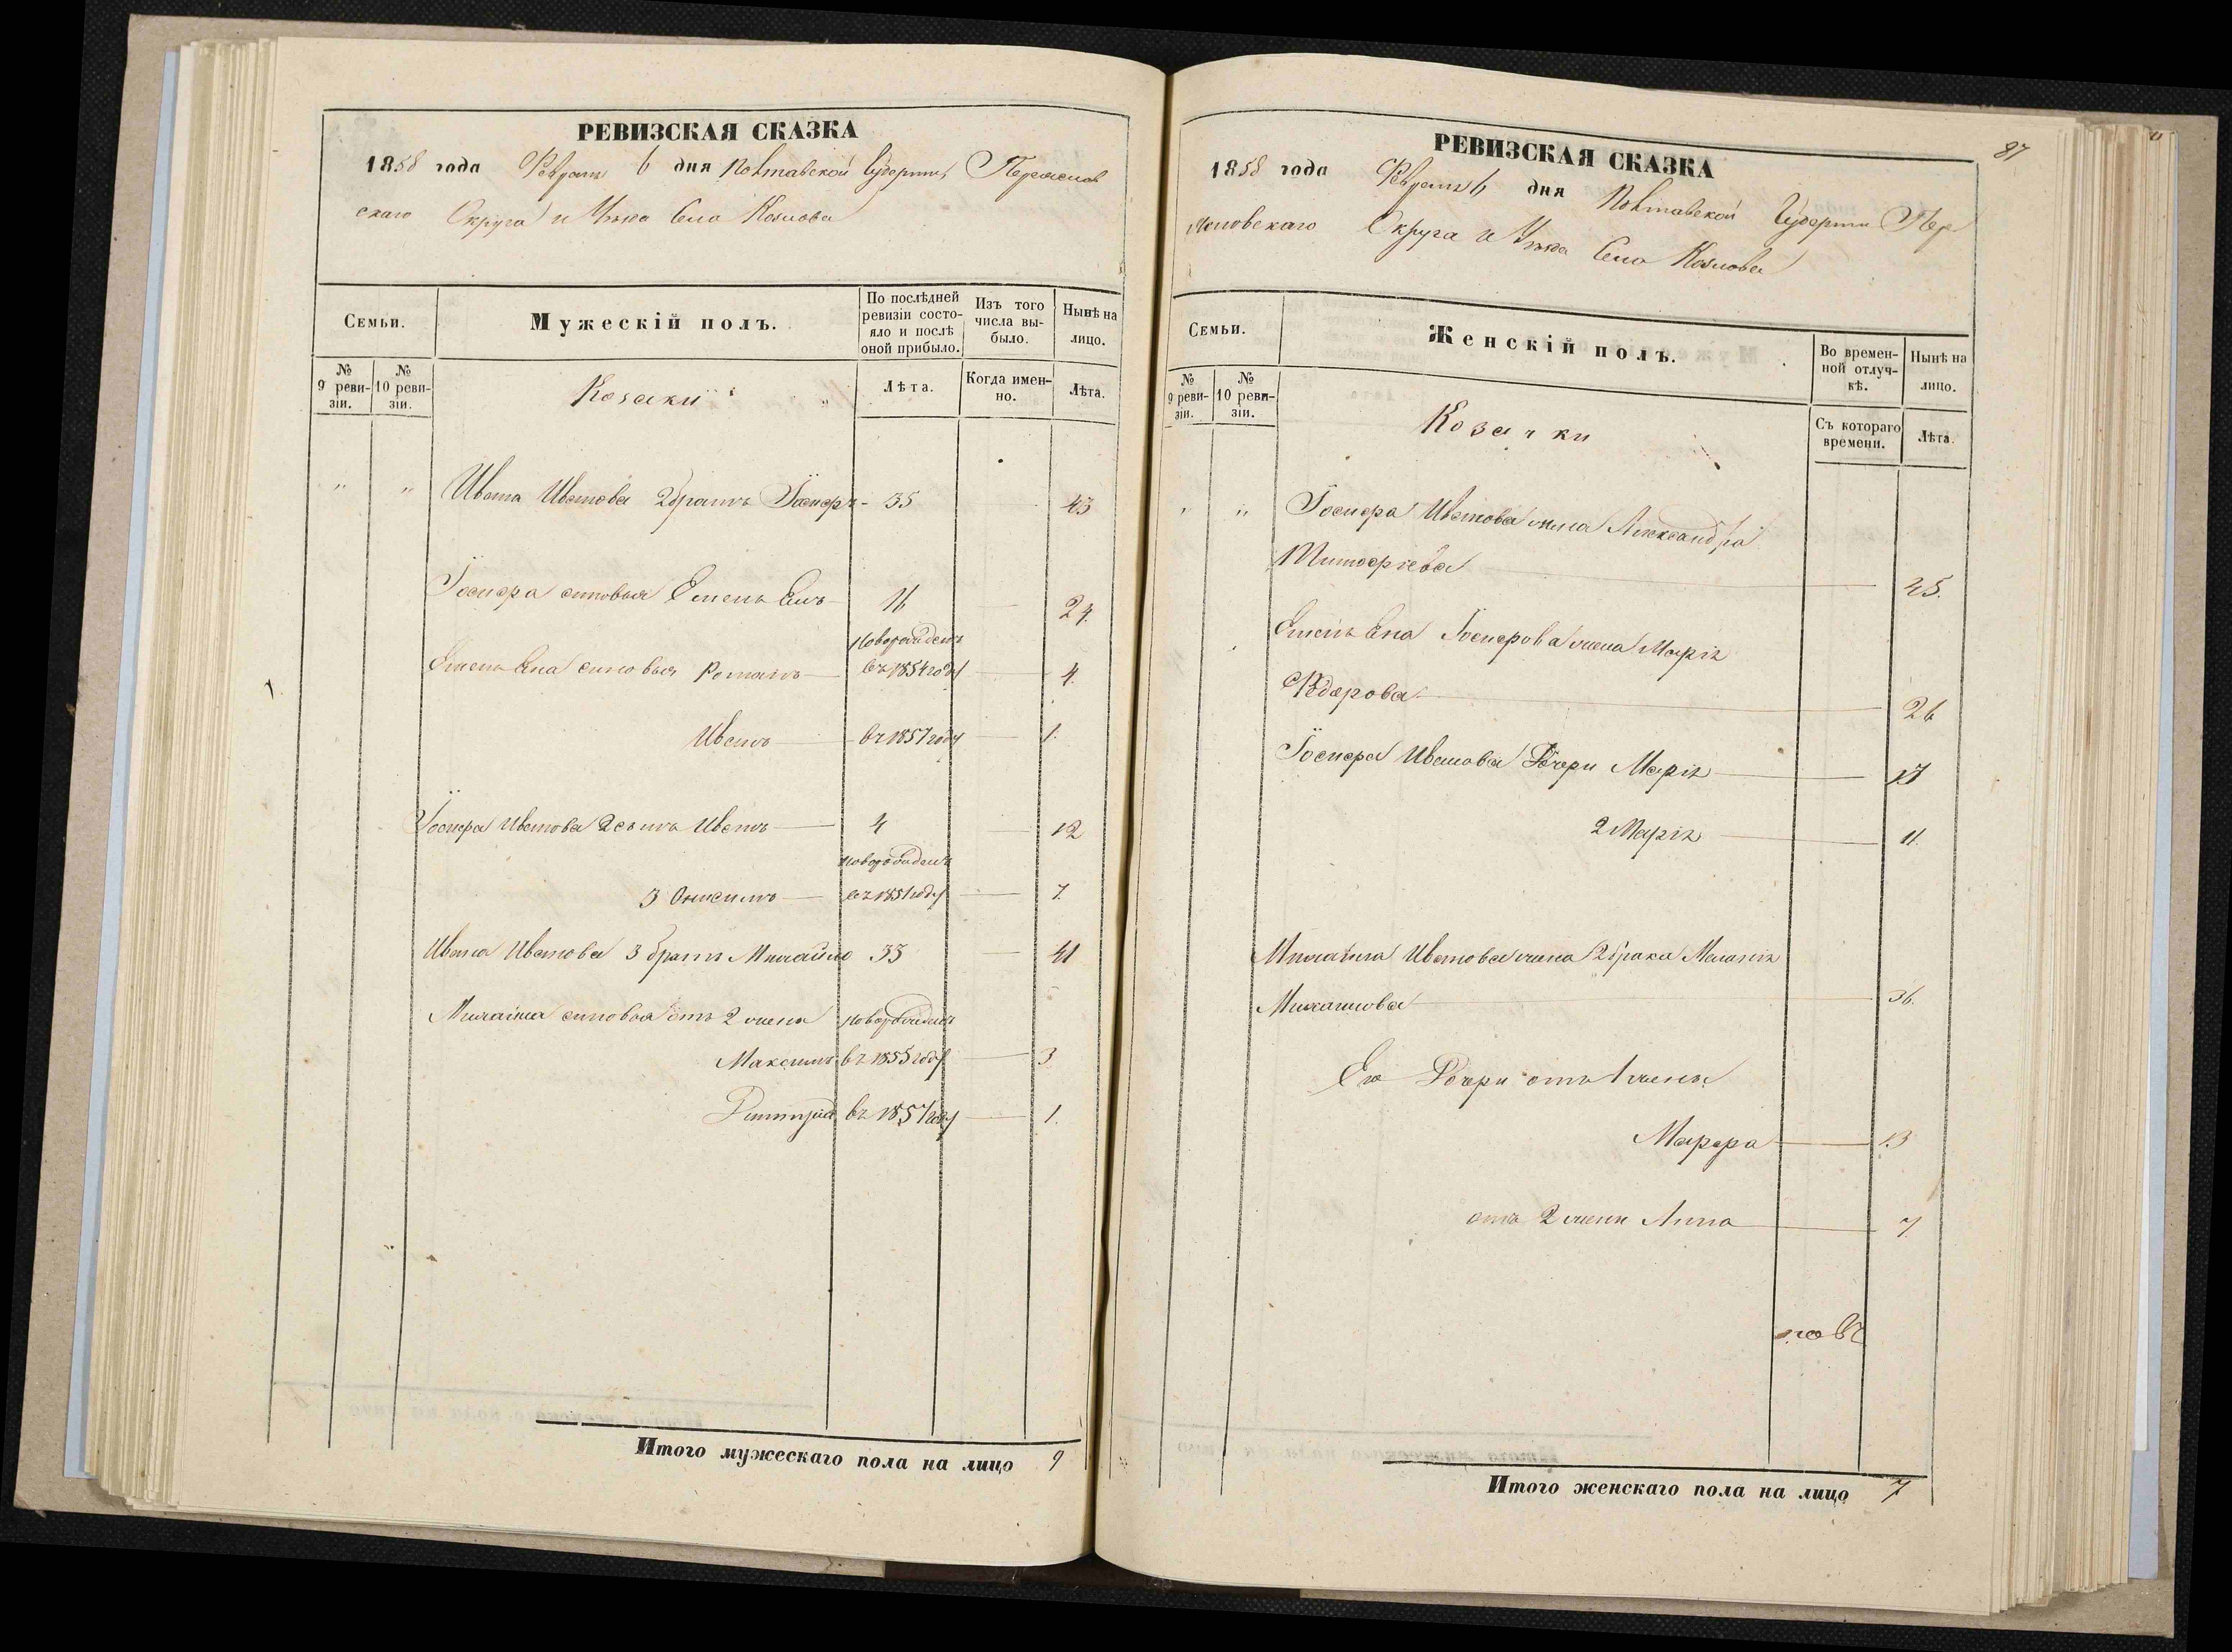 РЕВИЗСКАЯ СКАЗКА
1858 года Февраля 6 дня Полтавской Губерніи Переяслов
скаго Округа и Уѣзда Села Козлова
Семьи.
Мужескій полъ.
По послѣдней ревизіи состояло и послѣ оной прибыло.
Изъ того числа выбыло.
Нынѣ на лицо.
№ 9 ревизіи.
№ 10 ревизіи.
Козаки
Лѣта.
Когда именно.
Лѣта.
„ „ Ивана Иванова 2 братъ Іосифъ 35 43
Іосифа сыновья Емельянъ 16 24.
новорожденъ
Емельяна сыновья Романъ въ 1854 году 4.
Иванъ въ 1857 году 1.
Іосифа Иванова 2 сынъ Иванъ 4 12
новорожденъ
3 Онисимъ въ 1851 году 7.
Ивана Иванова 3 братъ Михайло 33 41
Михайла сыновья отъ 2 жены новорожденъ
Максимъ въ 1855 году 3
Дмитрій въ 1857 году 1.
Итого мужескаго пола на лицо 9
87
РЕВИЗСКАЯ СКАЗКА
1858 года Февраля 6 дня Полтавской Губерніи Пер
яловскаго Округа и Уѣзда Села Козлова
Семьи.
Женскій полъ.
Во временной отлучкѣ.
Нынѣ на лицо.
№ 9 ревизіи.
№ 10 ревизіи.
Козачки
Съ котораго времени.
Лѣта.
„ „ Іосифа Иванова жена Александра
Тимофеева 45.
Емельяна Іосифова жена Марія
Федорова 26
Іосифа Иванова дочери Марія 17
2 Марія 11.
Михайла Иванова жена 2 брака Меланія
Михайлова 36.
Его дочери отъ 1 жены
Марфа 13
отъ 2 жены Анна 7.
Итого женскаго пола на лицо 7